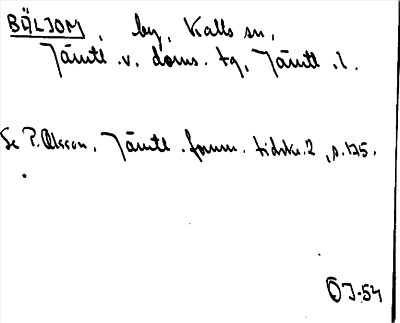 BÄLJOM, by, Kalls sn,
Jämtl. v. doms. tg, Jämtl. l.
Se P. Olsson, Jämtl. fornm. tidskr. 2, s. 175.
ÖJ-54